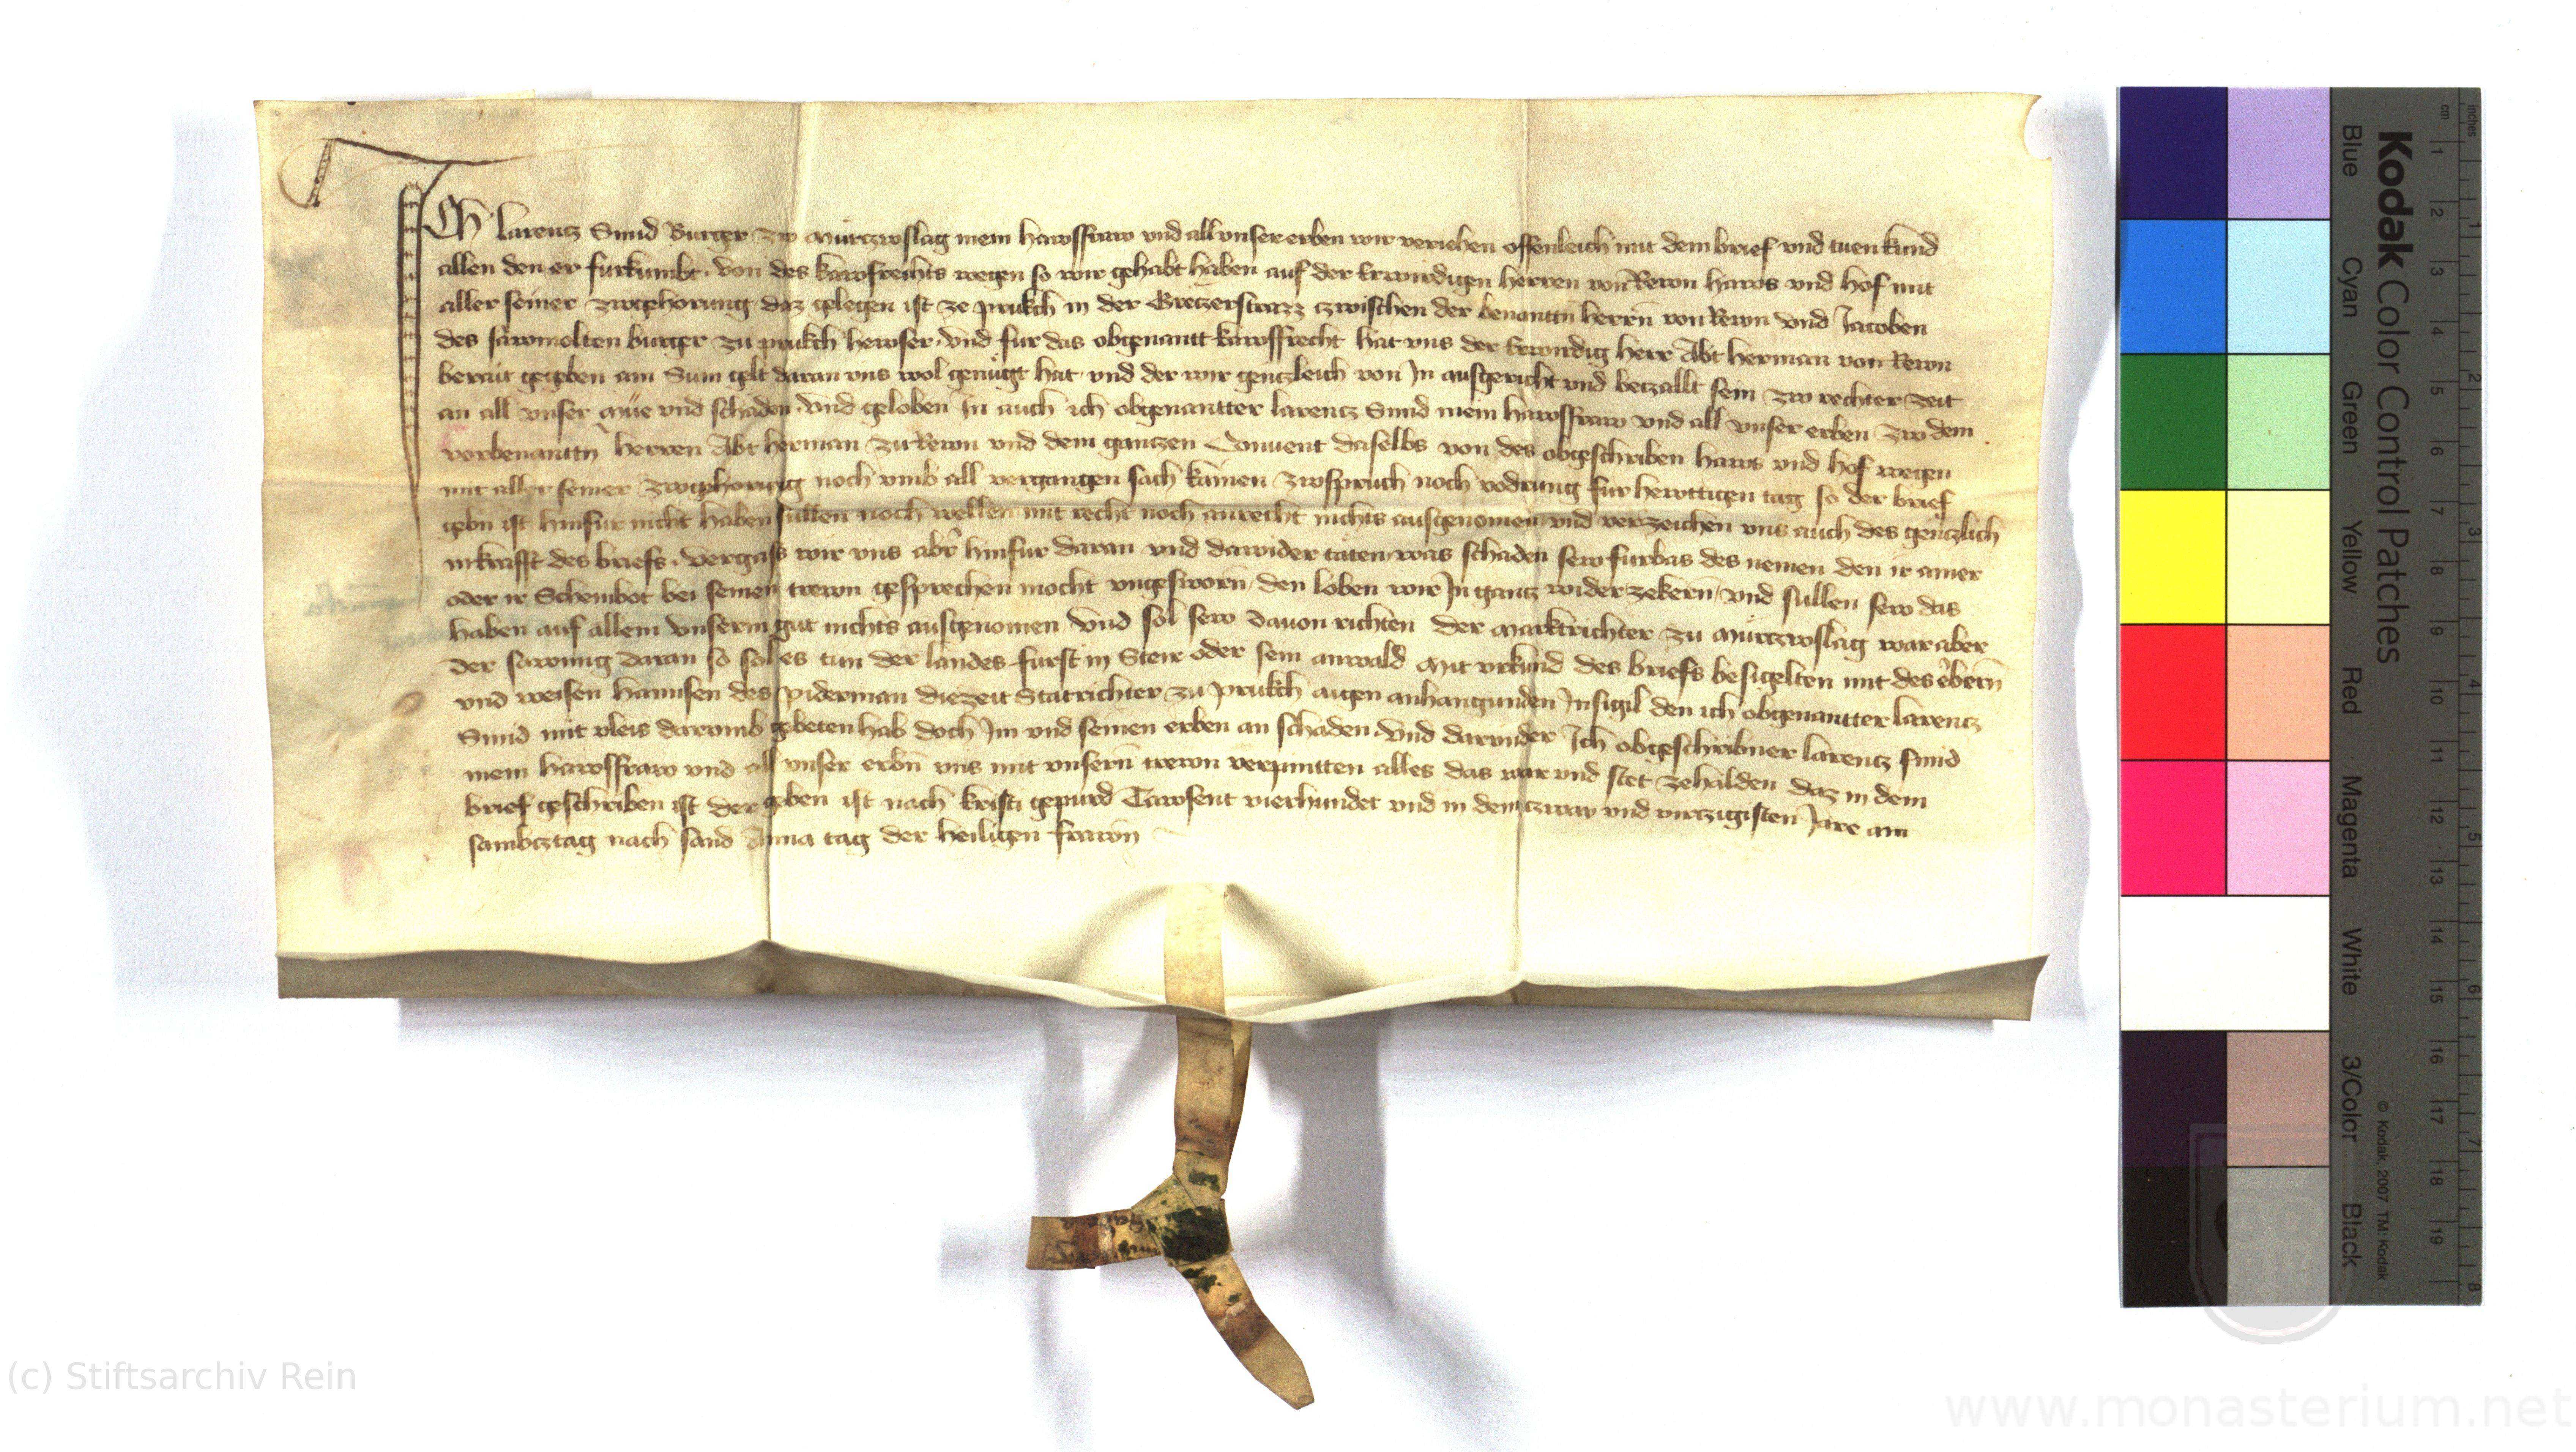 Ich larencz Smid Burger zw Mürczwslag mein hawsfraw vnd all vnser erben wir veriehen offenleich mit dem brief vnd tuen kund
allen den er furkumbt. von des kawfrechts wegen so wir gehabt haben auf der Erwirdigen herren von Rewn haws vnd hof mit
aller seiner zwgehorung daz gelegen ist ze prukch in der Greczerstrazz czwischen der benanttn herrn von Rewn vnd Jacoben
des sawmolten burger zu prukch hewser. vnd fur das obgenantt kawffrecht hat vns der Erwirdig herr Abt herman von Rewn
berait gegeben am Sum gelt daran vns wol genügt hat vnd der wir genczleich von In ausgericht vnd beczallt sein zw rechter zeit
an all vnser müe vnd schaden. vnd geloben In auch ich obgenantter larencz Smid mein hawsfraw vnd all vnser erben zw dem
vorbenanttn herren Abt herman zu Rewn vnd dem ganczen Conuent daselbs von des obgeschriben haws vnd hof wegen
mit aller seiner zwgehorung noch vmb all vergangen sach kainen zwspruch noch vodrung fur hewttigen tag so der brief
gebn ist hinfur nicht haben sullen noch wellen mit recht noch anrecht nichts ausgenomen vnd verzeichen vns auch des genczlich
inkrafft des briefs. vergass wir vns abr hinfur daran vnd dawider täten was schaden sew furbas des nemen den ir ainer
oder ir Scheinbot bei seinen trewn gesprechen mocht vngesworn den loben wir In gancz wider zekern vnd sullen sew das
haben auf allem vnserm gut nichts ausgenomen vnd sol sew dauon richten der marktrichter zu mürczwslag war aber
der sawmig daran so sol es tun der landes furst in Steir oder sein anwald Mit vrkund des briefs besigelten mit des ebern
vnd weisen hannsen des piderman diezeit Statrichter zu prukch aigen anhangunden Insigil den ich obgenantter larencz
Smid mit vleis darumb gebeten hab doch Im vnd seinen erben an schaden. vnd darvnder Ich obgeschribner larencz smid
mein hawsfraw vnd all vnser erbn vns mit vnsern trewn verpintten alles das war vnd stet zehalden daz in dem
brief geschriben ist der geben ist nach kristi gepurd Tawsent vierhundet vnd in dem czway vnd virczigisten Jare am
sambcztag nach sand Anna tag der heiligen frawn
Kodak Color Control Patches
Blue Cyan Green Yellow Red Magenta White 3/Color Black
© Kodak, 2007 TM: Kodak
cm 1 2 3 4 5 6 7 8 9 10 11 12 13 14 15 16 17 18 19
inches 1 2 3 4 5 6 7 8
(c) Stiftsarchiv Rein
www.monasterium.net